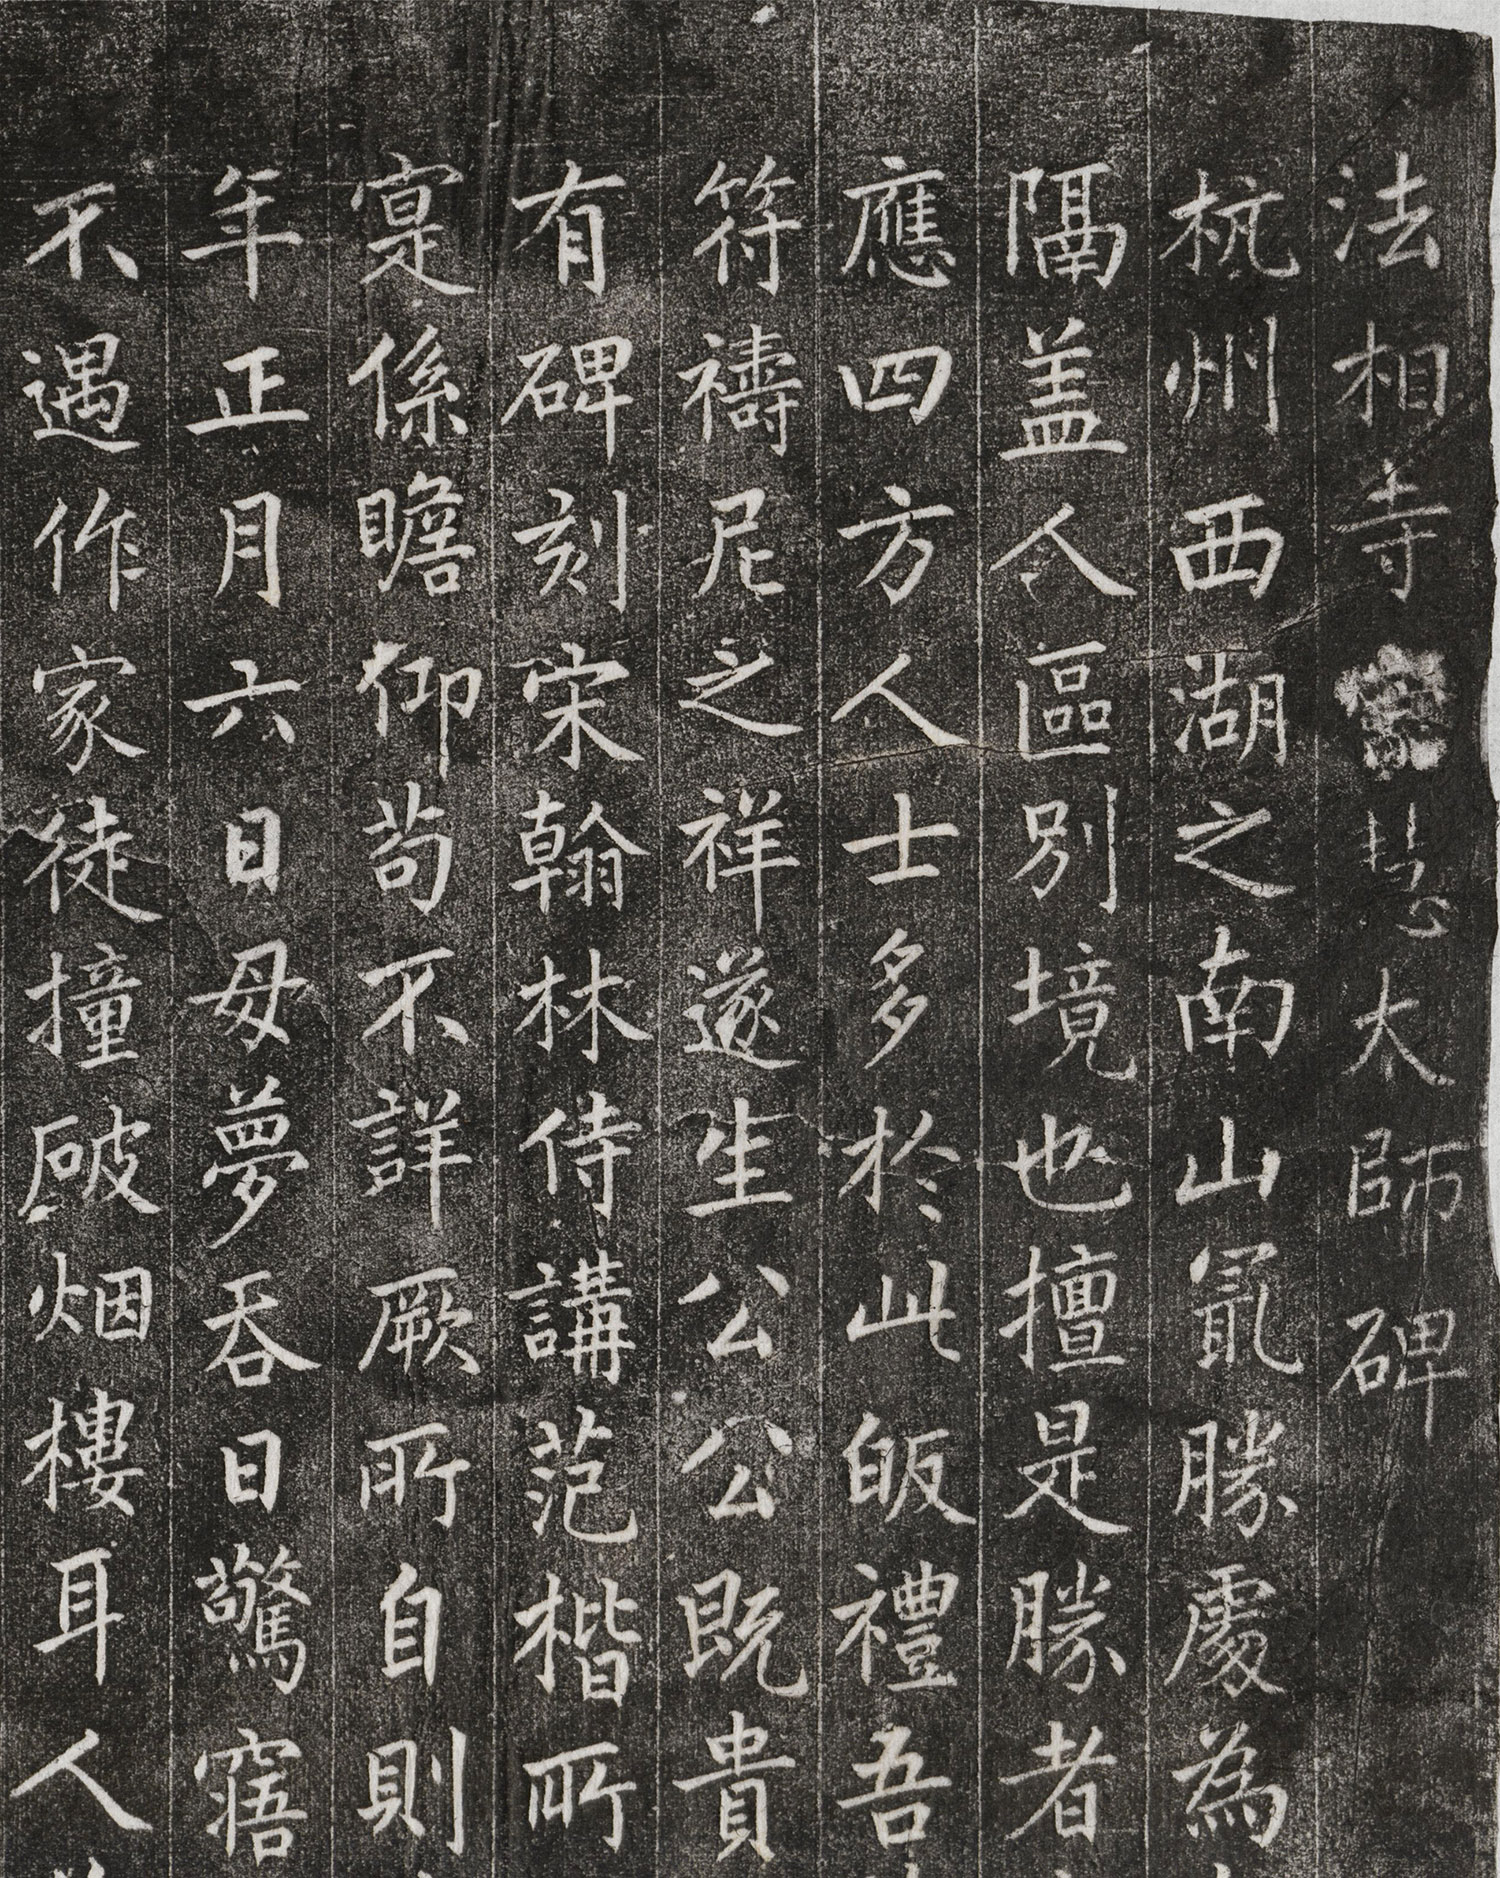 法相寺宗慧大師碑
杭州西湖之南山冣勝處為
隔盖人區別境也擅是勝者
應四方人士多於此皈禮吾
符禱尼之祥遂生公公既貴
有碑刻宋翰林侍講范楷所
寔係瞻仰茍不詳厥所自則
年正月六日母夢吞日驚寤
不遇作家徒撞破烟樓耳人